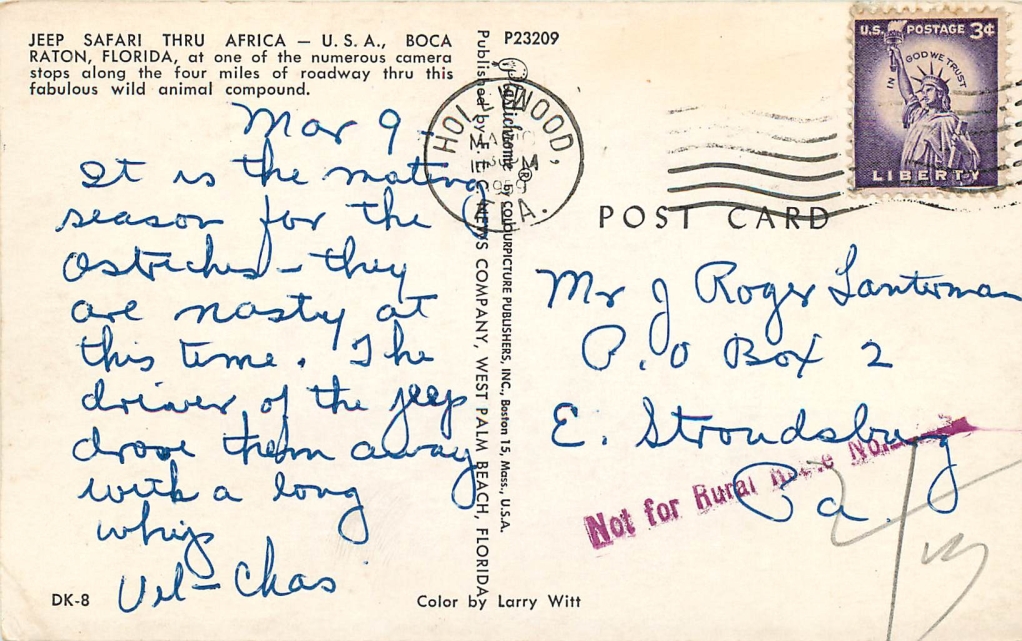 JEEP SAFARI THRU AFRICA — U. S. A., BOCA
RATON, FLORIDA, at one of the numerous camera
stops along the four miles of roadway thru this
fabulous wild animal compound.
Mar 9 -
It is the mating
season for the
Ostriches - they
are nasty at
this time. The
driver of the jeep
drove them away
with a long
whip
Vel - Chas
DK-8
Published by F. E. C. NEWS COMPANY, WEST PALM BEACH, FLORIDA
Plastichrome ® by COLOURPICTURE PUBLISHERS, INC., Boston 15, Mass., U.S.A.
Color by Larry Witt
P23209
HOLLYWOOD,
1959
FLA.
U.S. POSTAGE 3¢
IN GOD WE TRUST
LIBERTY
POST CARD
Mr J Roger Lanterman
P.O Box 2
E. Stroudsburg
Pa.
Not for Rural Route No.